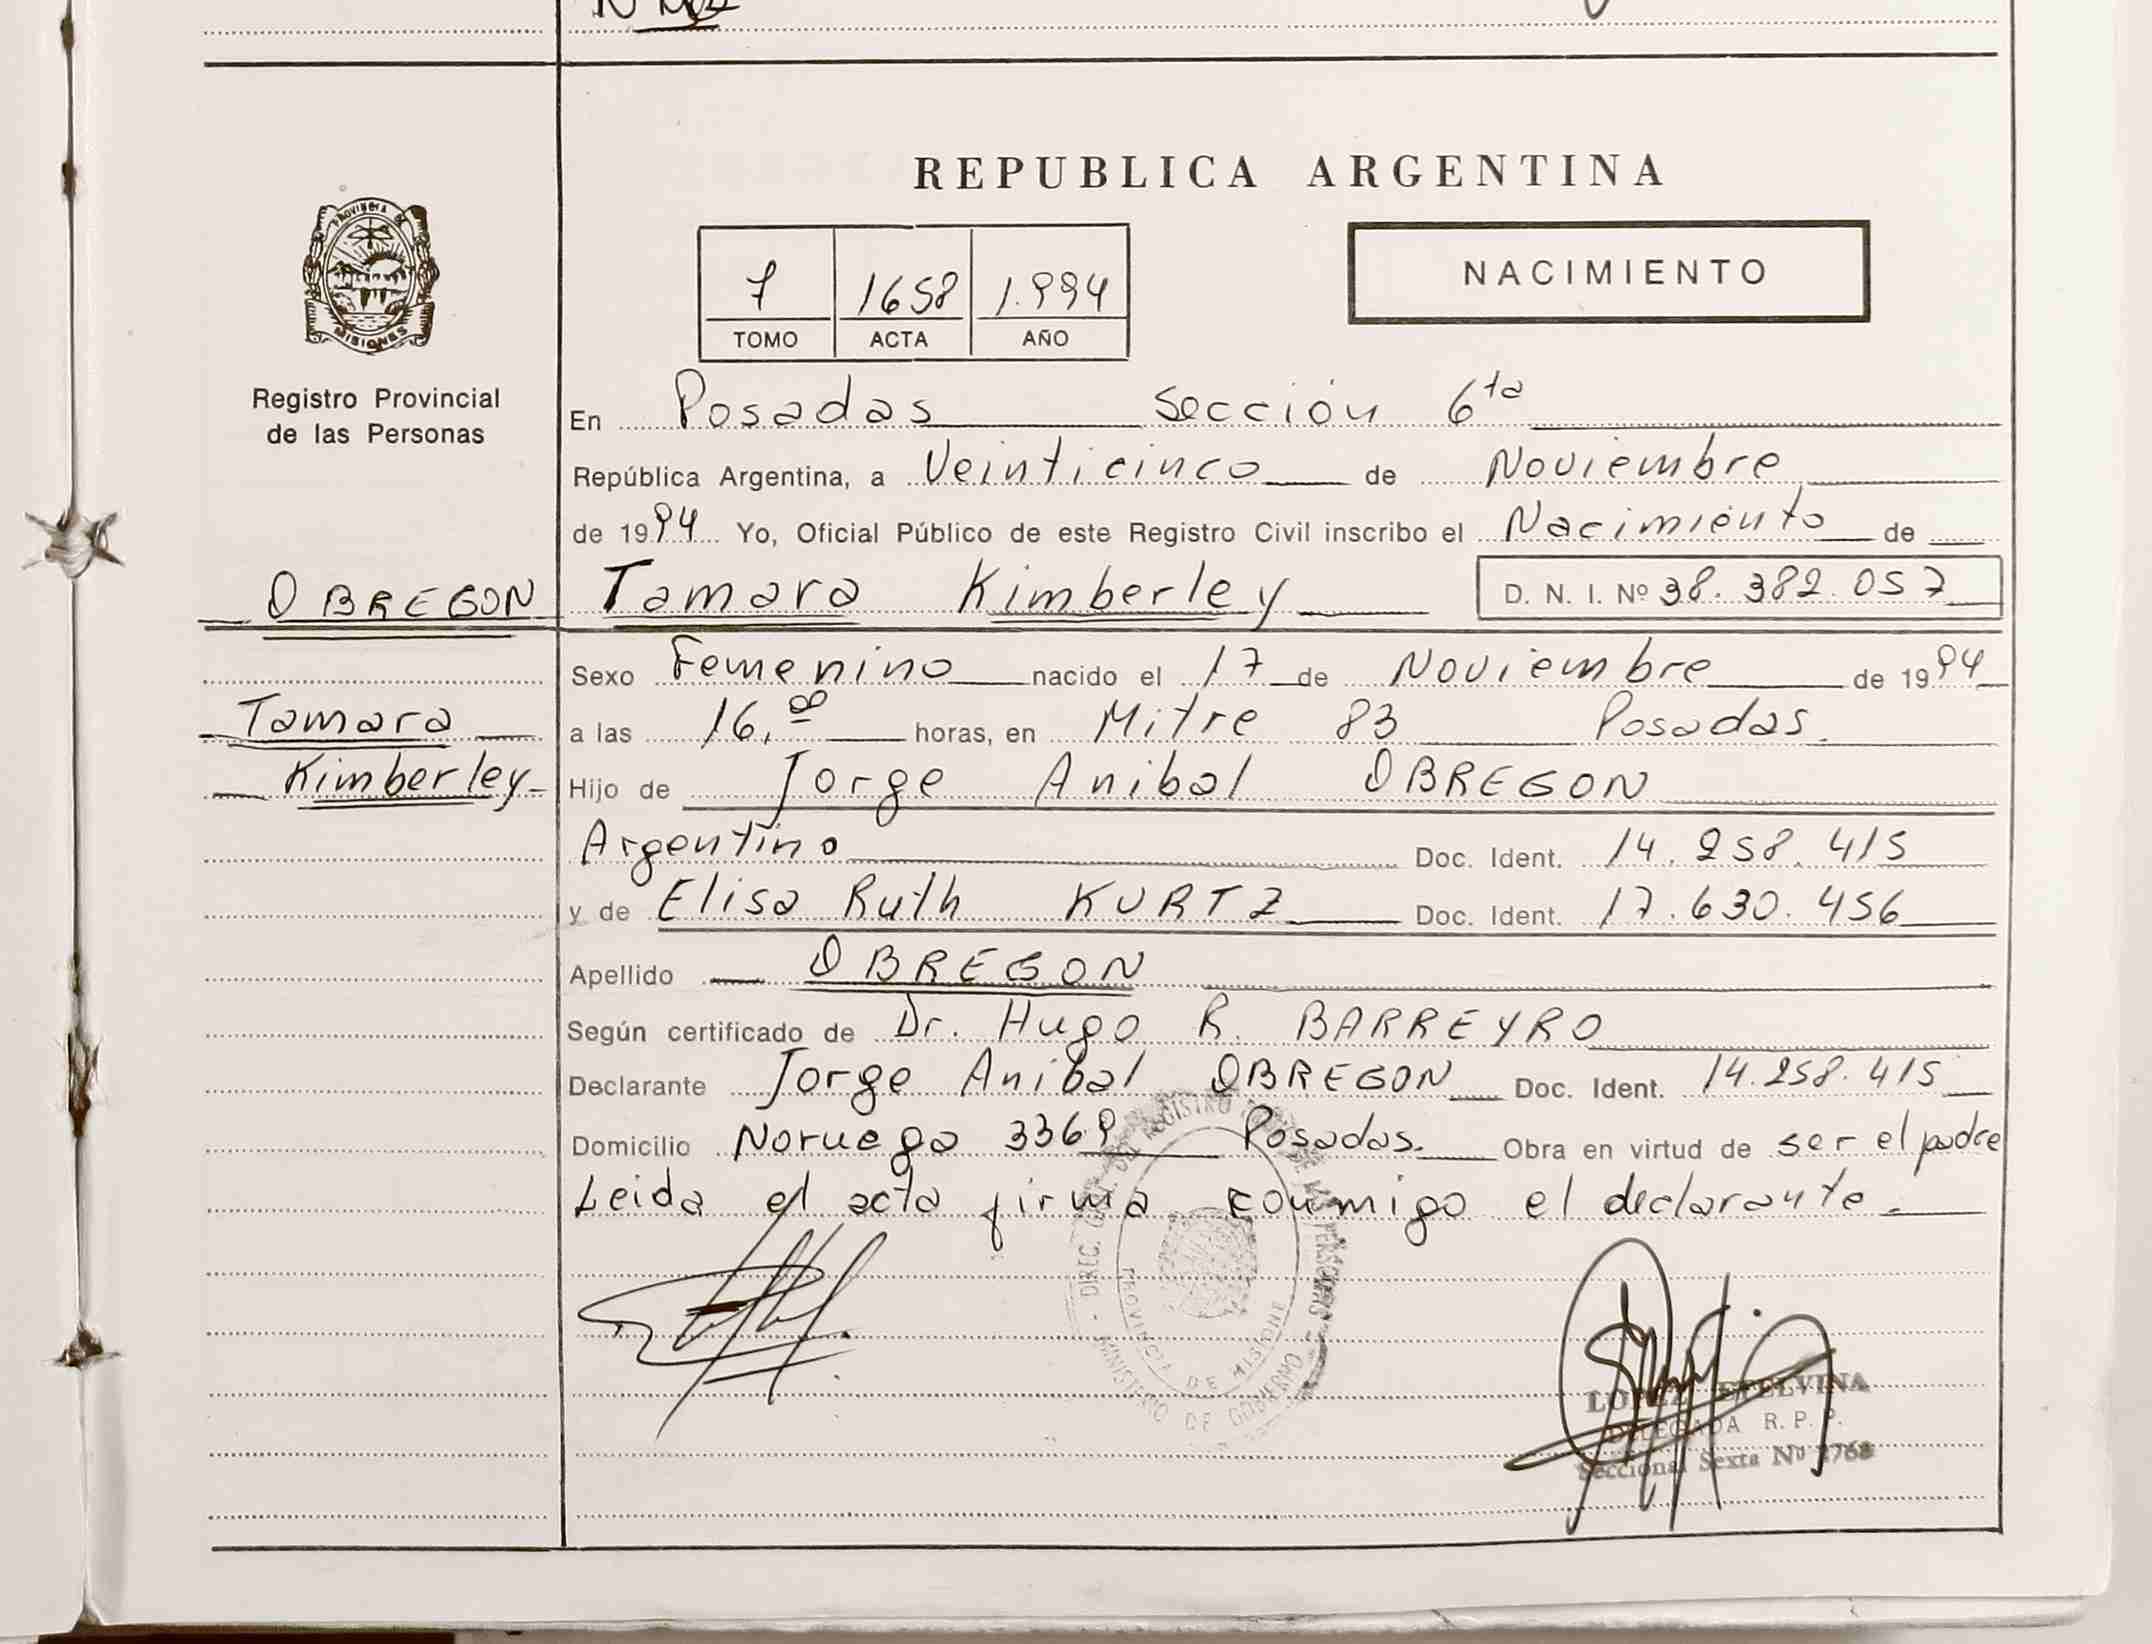 PROVINCIA DE
MISIONES
Registro Provincial
de las Personas
OBREGON
Tamara
Kimberley
REPUBLICA ARGENTINA
7 1658 1.994
TOMO ACTA AÑO
NACIMIENTO
En Posadas Sección 6ta
República Argentina, a Veinticinco de Noviembre
de 1994 Yo, Oficial Público de este Registro Civil inscribo el Nacimiento de
Tamara Kimberley D. N. I. Nº 38.382.057
Sexo Femenino nacido el 17 de Noviembre de 1994
a las 16,00 horas, en Mitre 83 Posadas.
Hijo de Jorge Anibal OBREGON
Argentino Doc. Ident. 14.258.415
y de Elisa Ruth KURTZ Doc. Ident. 17.630.456
Apellido OBREGON
Según certificado de Dr. Hugo R. BARREYRO
Declarante Jorge Anibal OBREGON Doc. Ident. 14.258.415
Domicilio Noruega 3369 Posadas. Obra en virtud de ser el padre
Leida el acta firma conmigo el declarante.
PROVINCIA DE MISIONE
MINISTERIO DE GOBIERNO
ETELVINA
DELEGADA R. P. P.
Seccional Sexta Nº